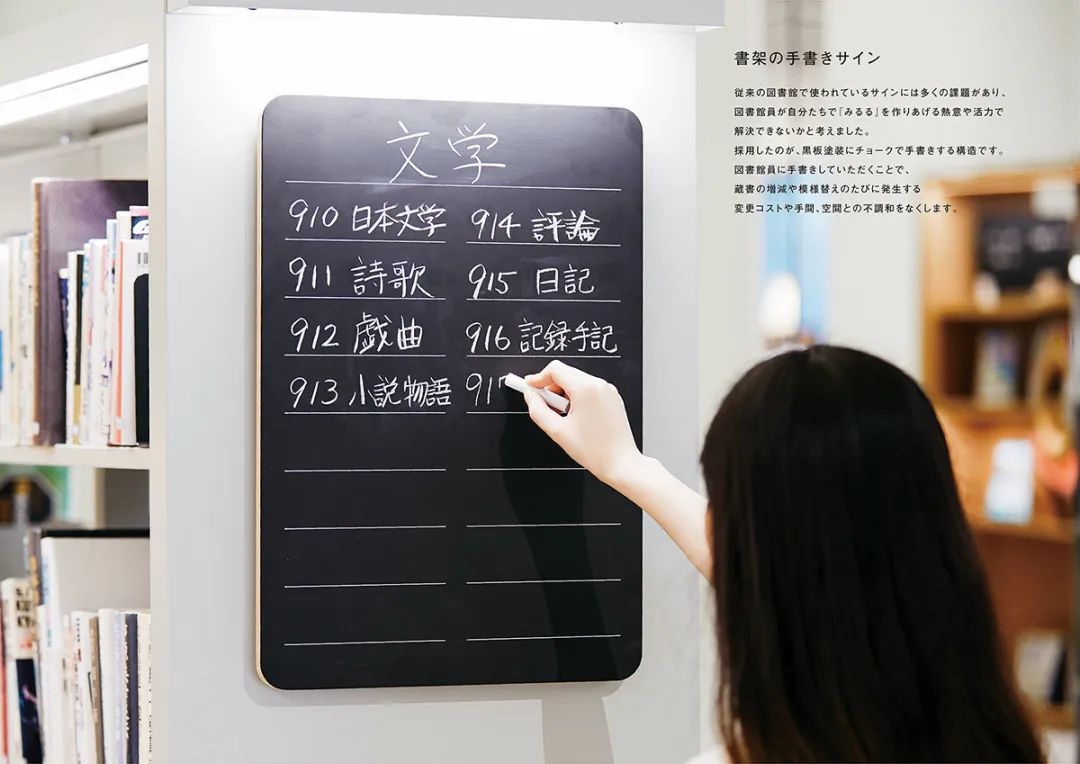 文学
910 日本文学
911 詩歌
912 戯曲
913 小説物語
914 評論
915 日記
916 記録手記
917
書架の手書きサイン
従来の図書館で使われているサインには多くの課題があり、
図書館員が自分たちで『みるる』を作りあげる熱意や活力で
解決できないかと考えました。
採用したのが、黒板塗装にチョークで手書きする構造です。
図書館員に手書きしていただくことで、
蔵書の増減や模様替えのたびに発生する
変更コストや手間、空間との不調和をなくします。